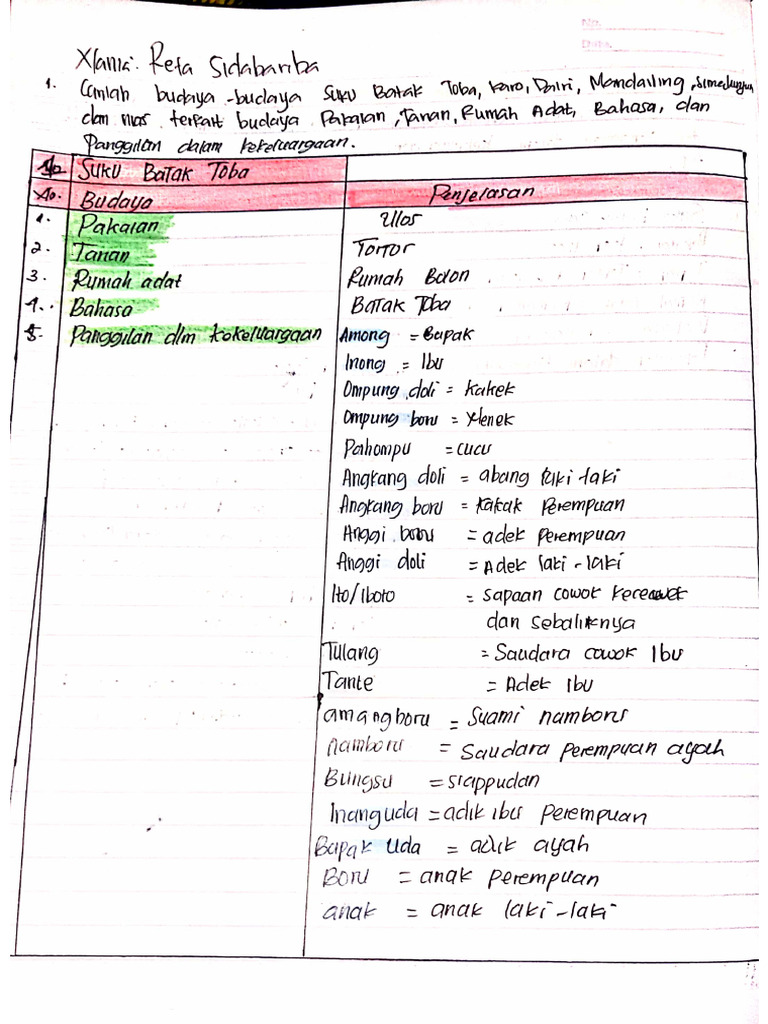 No.
Date.
Nama: Reta Sidabariba
1. Carilah budaya-budaya Suku Batak Toba, Karo, Dairi, Mandailing, Simalungun
dan nias terkait budaya Pakaian, Tarian, Rumah Adat, Bahasa, dan
Panggilan dalam kekeluargaan.
No SUKU BATAK TOBA
No. Budaya Penjelasan
1. Pakaian Ulos
2. Tarian TorTor
3. Rumah adat Rumah Bolon
4. Bahasa BATAK Toba
5. Panggilan dlm kekeluargaan Among = Bapak
Inong = Ibu
Ompung doli = kakek
Ompung boru = Nenek
Pahompu = cucu
Angkang doli = abang laki-laki
Angkang boru = kakak Perempuan
Anggi boru = adek perempuan
Anggi doli = Adek laki-laki
Ito/Iboto = sapaan cowok kecewek
dan sebaliknya
Tulang = Saudara cowok Ibu
Tante = Adek ibu
amangboru = Suami namboru
namboru = Saudara perempuan ayah
Bungsu = siappudan
Inanguda = adik ibu perempuan
Bapak Uda = adik ayah
Boru = anak perempuan
anak = anak laki-laki